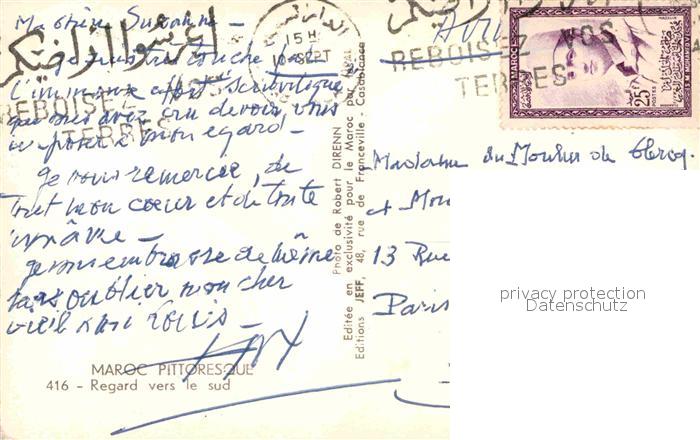 Ma chère Suzanne -
je suis très touché par
l'immense effort
que vous avez cru devoir vous
imposer à mon égard -
Je vous remercie, de
tout mon cœur et de toute
mon âme -
je vous embrasse de même
sans oublier mon cher
vieil ami Louis -
MAROC PITTORESQUE
416 - Regard vers le sud
Photo de Robert DIRENN
Editée en exclusivité pour le Maroc par REAL
Editions JEFF, 48, rue de Franceville - Casablanca
15 H
10 SEPT
REBOISEZ VOS
TERRES
اغرسوا اراضيكم
الدار البيضاء
REBOISEZ VOS
TERRES
MAROC
25F
POSTES
Madame du Moulin de
et Mon
13 Rue
Paris
privacy protection
Datenschutz